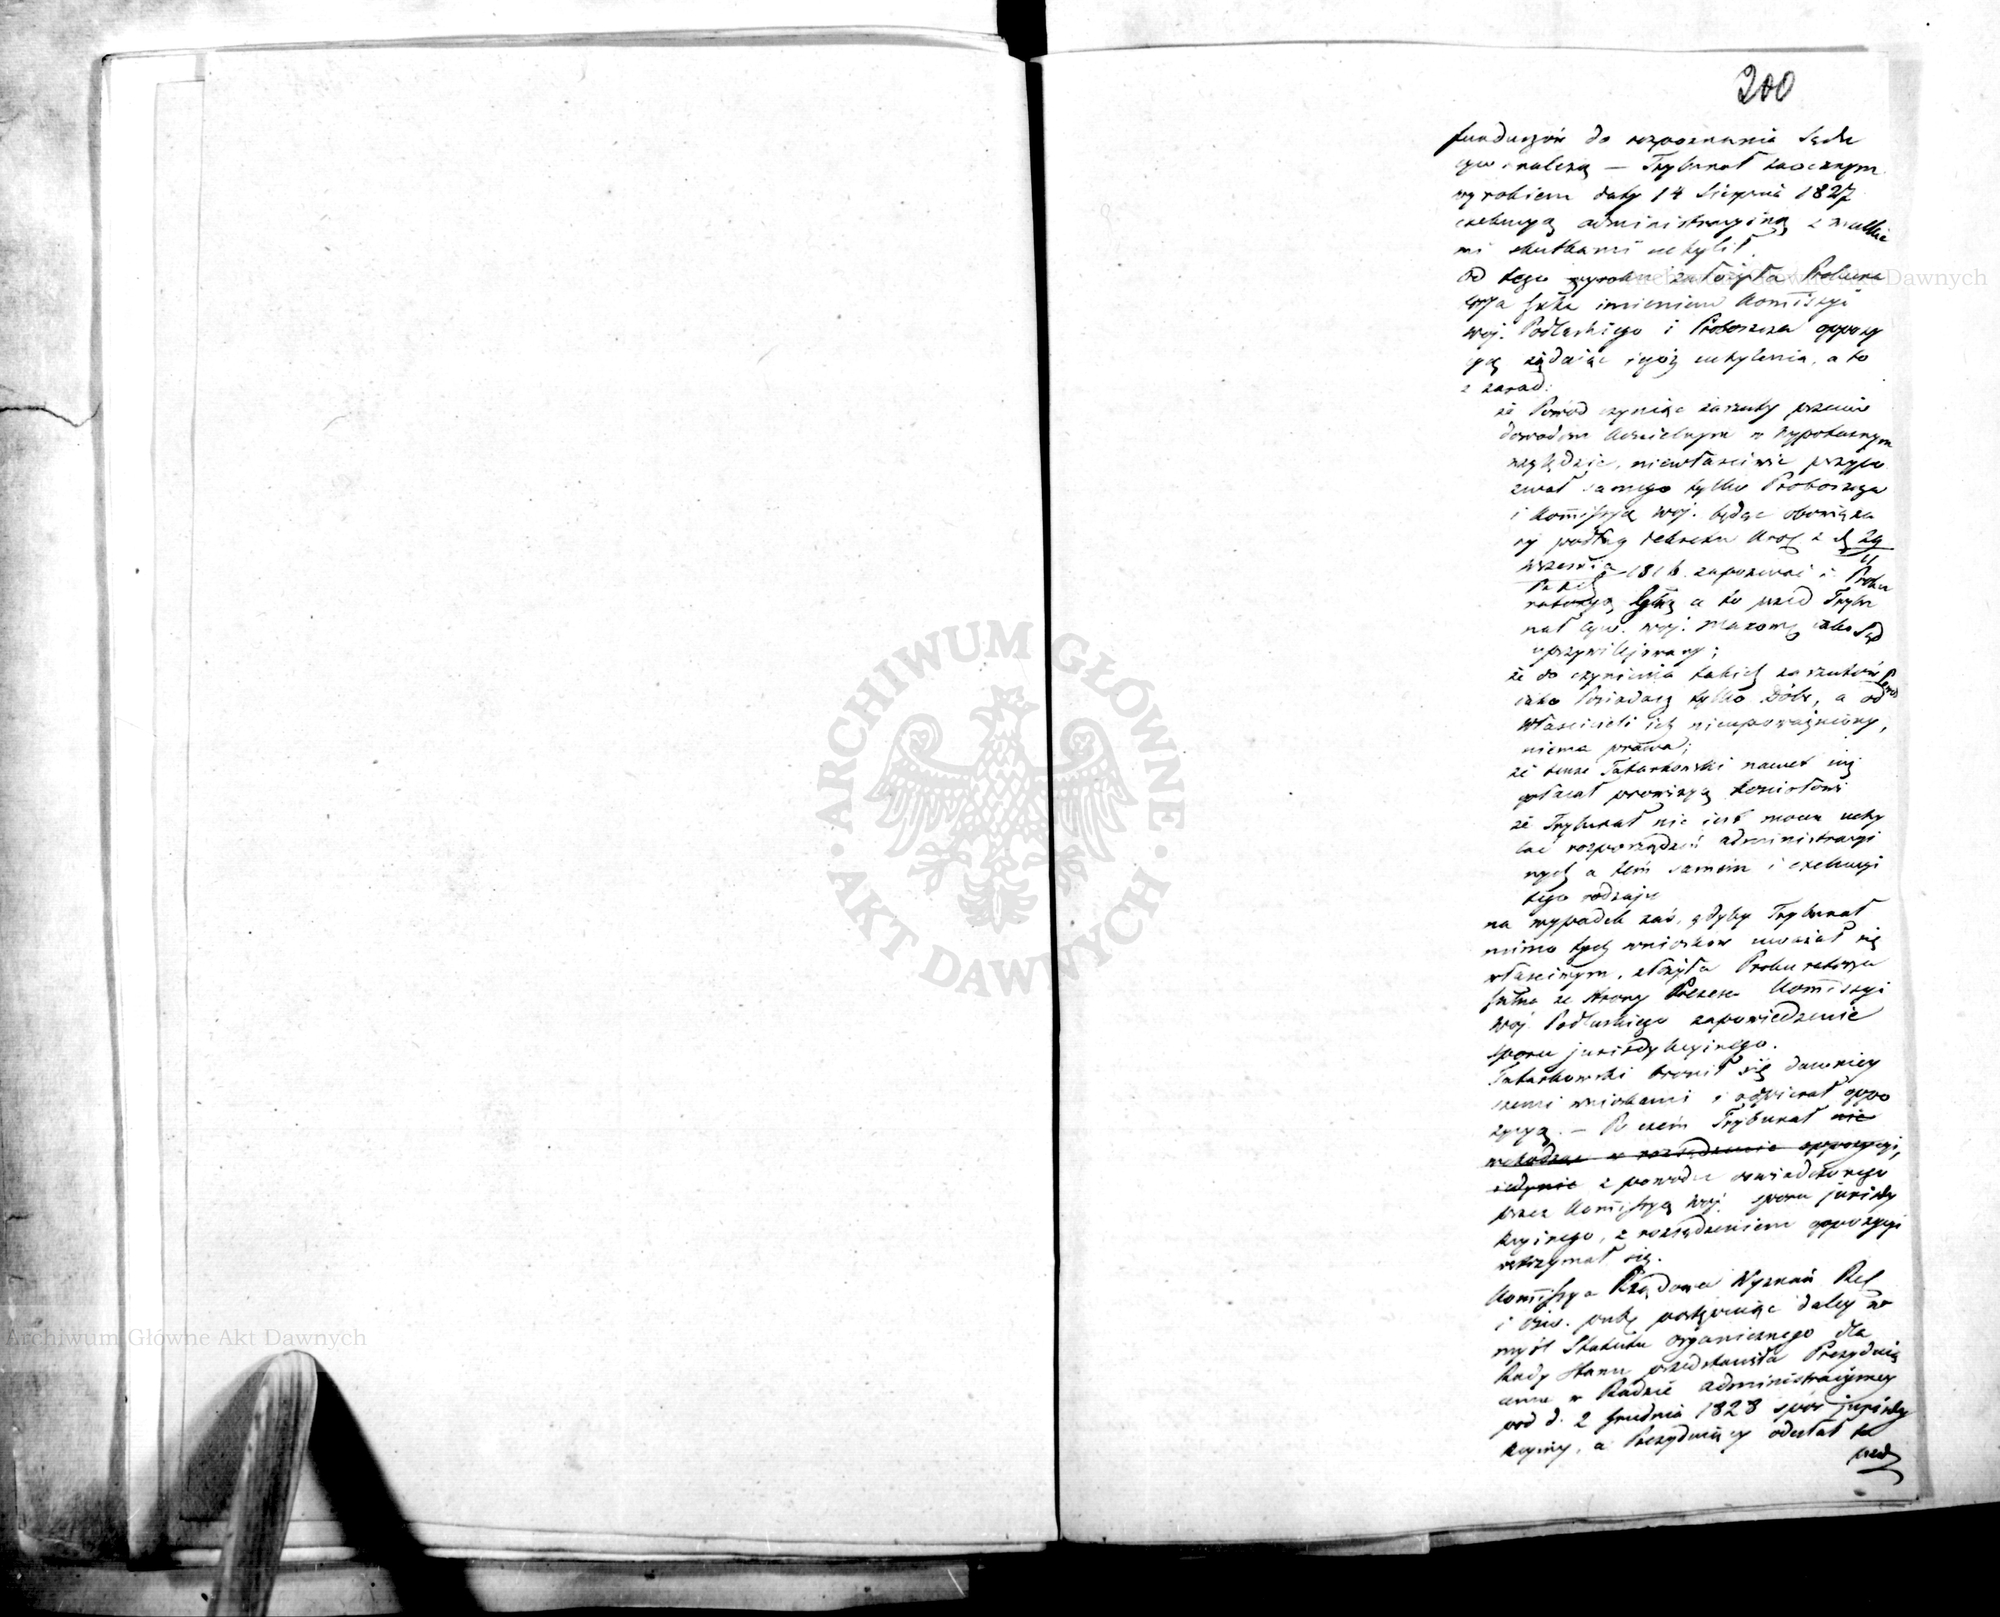 200
funduszów do rozpoznania Sądu
cyw. należą — Trybunał zaocznym
wyrokiem daty 14 Sierpnia 1827
exekucyą administracyiną z wszelkie
mi skutkami uchylił.
Od tego wyroku założyła Prokura
torya imieniem Kommissyi
Woj. Podlaskiego i Proboszcza oppozy
cyą żądaiąc iegoż uchylenia, a to
z zasad:
że Powód czyniąc zarzuty przeciw
dowodom w hypotecznym
względzie, niewłaściwie przypo
zwał samego tylko Proboszcza
i Kommissyą Woj. będąc obowiąza
ny podług dekretu Król. z d. 29
września 1816. zapozwać i Proku
ratoryą a to przed Trybu
nał Cyw. Woj. Mazow. iako Sąd
uprzywilejowany;
że do czynienia takich zarzutów Powód
iako Posiadacz tylko Dóbr, a od
Właścicieli ich nieupoważniony,
niema prawa;
że tenże Tatarkowski nawet iuż
opłacał prowizyą Kościołowi
że Trybunał nie iest mocen uchy
lać rozporządzeń administracyi
nych a tém samém i exekucyi
tego rodzaju
na wypadek zaś, gdyby Trybunał
mimo tych wniosków uważał się
właściwym, złożyła Prokuratorya
ze strony Prezesa Kommissyi
Woj. Podlaskiego zapowiedzenie
sporu jurisdykcyinego.
Tatarkowski bronił się dawniey
szemi wnioskami i odpierał oppo
zycyą. — Po czém Trybunał nie
wchodząc w rozsądzenie oppozycyi,
iedynie z powodu
przez Kommissyą Woj. sporu jurisdy
kcyinego, z rozsądzeniem oppozycyi
wstrzymał się.
Kommissya Rządowa Wyznań Rel.
i Ośw. publ. postępuiąc daley w
myśl Statutu organicznego dla
Rady Stanu przedstawiła Prezyduią
cemu w Radzie administracyiney
pod d. 2 Grudnia 1828 spór jurisdy
kcyiny, a Prezyduiący odesłał te